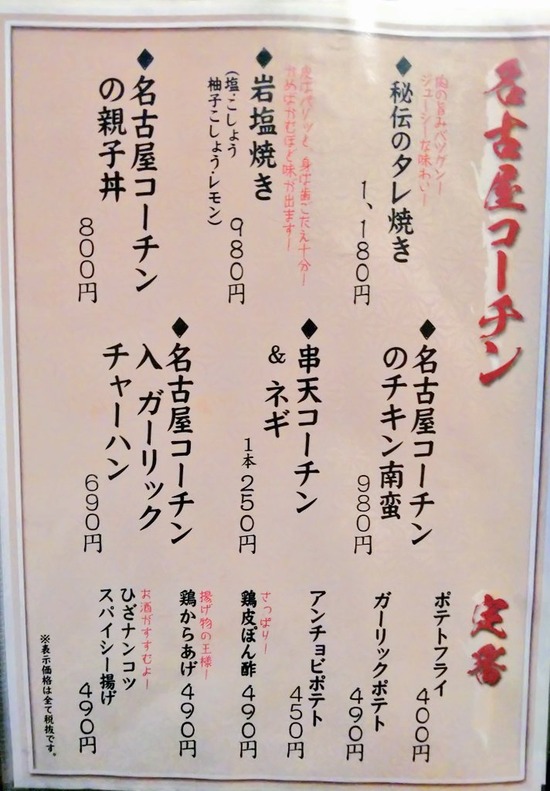 名古屋コーチン
肉の旨みバツグンー
ジューシーな味わいー
◆秘伝のタレ焼き
1、180円
皮はパリッと、身は歯ごたえ十分ー
かめばかむほど味が出ますー
◆岩塩焼き
(塩・こしょう
柚子こしょう・レモン)
980円
◆名古屋コーチン
の親子丼
800円
◆名古屋コーチン
のチキン南蛮
980円
◆串天コーチン
& ネギ
1本250円
◆名古屋コーチン
入 ガーリック
チャーハン
690円
定番
ポテトフライ
400円
ガーリックポテト
490円
アンチョビポテト
450円
さっぱりー
鶏皮ぽん酢 490円
揚げ物の王様ー
鶏からあげ 490円
お酒がすすむよー
ひざナンコツ
スパイシー揚げ
490円
※表示価格は全て税抜です。